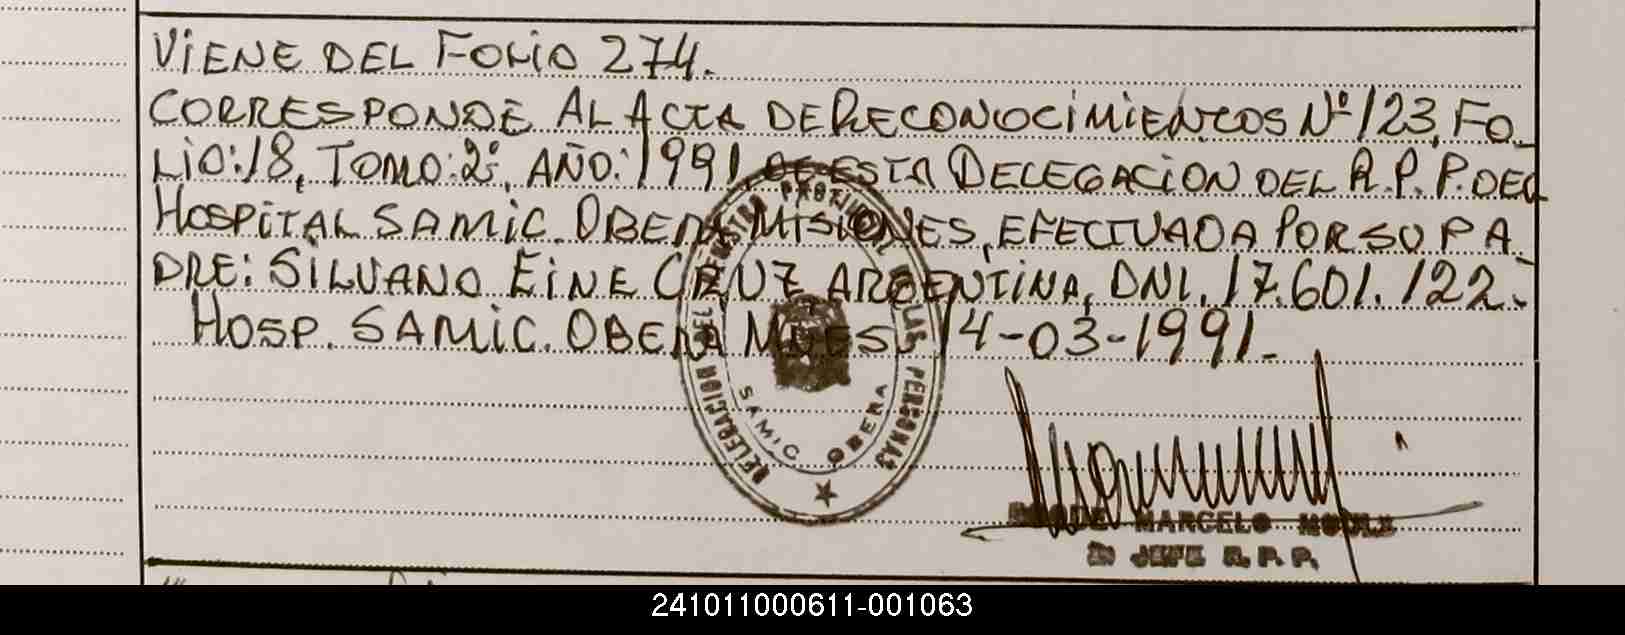 VIENE DEL FOLIO 274.
CORRESPONDE AL ACTA DE RECONOCIMIENTOS Nº 123, FO_
LIO: 18, TOMO: 2º, AÑO: 1991, DE ESTA DELEGACION DEL R.P.P. DEL
HOSPITAL SAMIC. OBERA MISIONES, EFECTUADA POR SU PA_
DRE: SILVANO EINE CRUZ ARGENTINA, DNI. 17.601.122.-
HOSP. SAMIC. OBERA MNES 14-03-1991.-
DELEGACION DEL REGISTRO PROVINCIAL DE LAS PERSONAS
SAMIC OBERA
MARCELO
JEFE R.P.P.
241011000611-001063